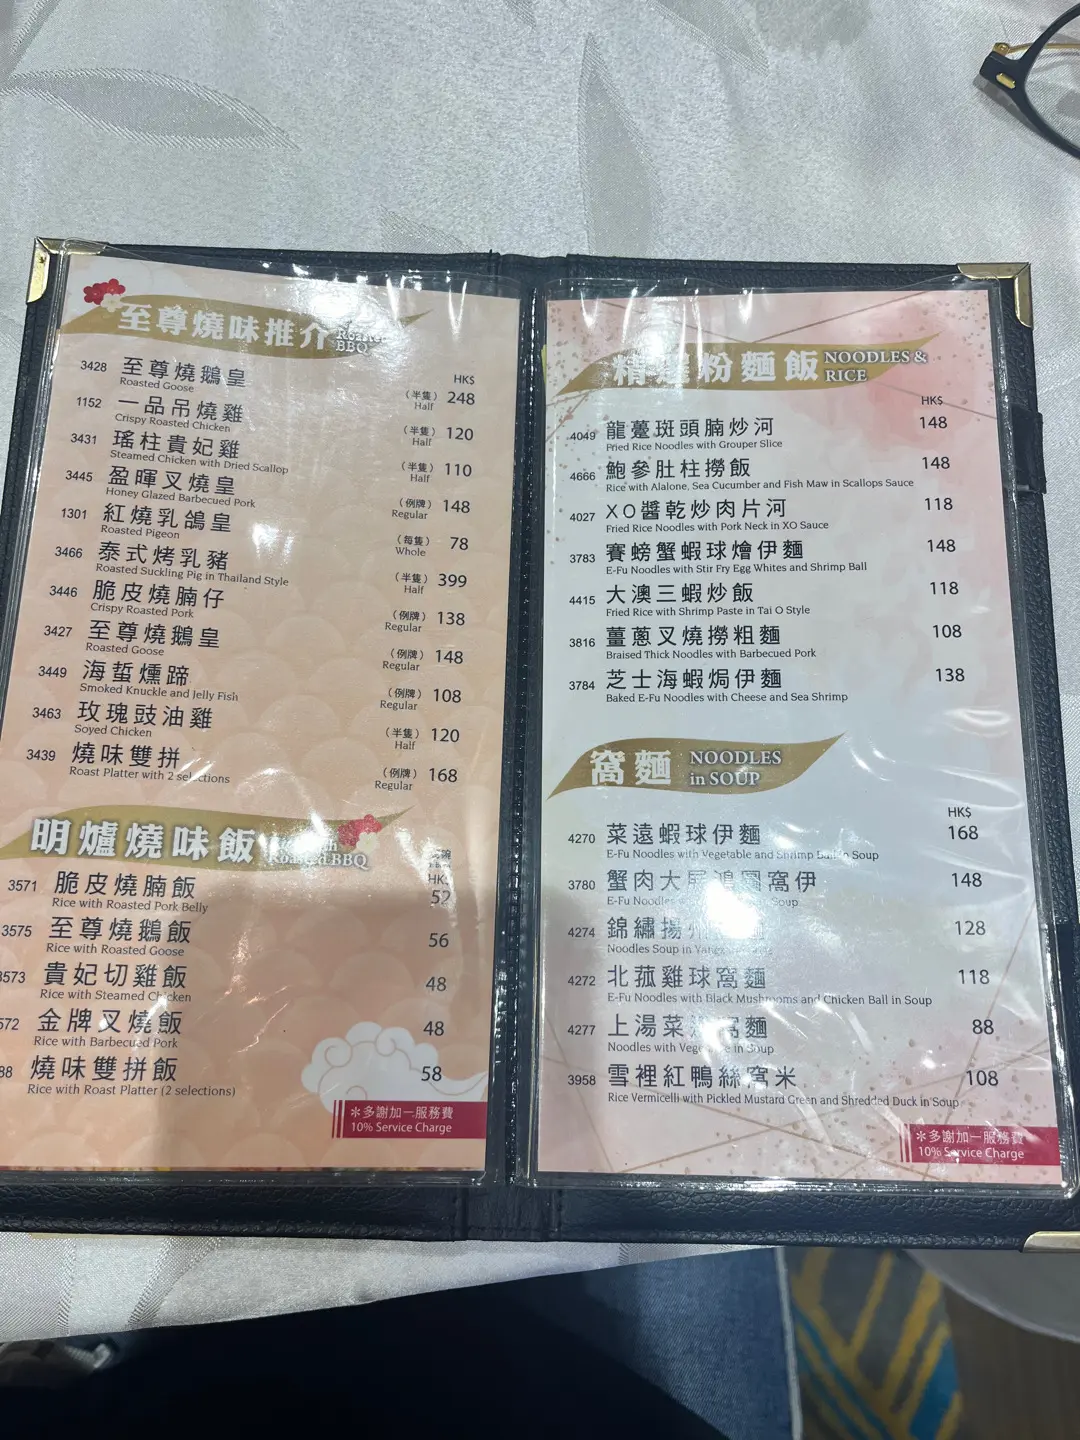 至尊燒味推介
Roasted
BBQ
HK$
3428 至尊燒鵝皇 (半隻) 248
Roasted Goose Half
1152 一品吊燒雞 (半隻) 120
Crispy Roasted Chicken Half
3431 瑤柱貴妃雞 (半隻) 110
Steamed Chicken with Dried Scallop Half
3445 盈暉叉燒皇 (例牌) 148
Honey Glazed Barbecued Pork Regular
1301 紅燒乳鴿皇 (每隻) 78
Roasted Pigeon Whole
3466 泰式烤乳豬 (半隻) 399
Roasted Suckling Pig in Thailand Style Half
3446 脆皮燒腩仔 (例牌) 138
Crispy Roasted Pork Regular
3427 至尊燒鵝皇 (例牌) 148
Roasted Goose Regular
3449 海蜇燻蹄 (例牌) 108
Smoked Knuckle and Jelly Fish Regular
3463 玫瑰豉油雞 (半隻) 120
Soyed Chicken Half
3439 燒味雙拼 (例牌) 168
Roast Platter with 2 selections Regular
明爐燒味飯
Roasted BBQ
HK$
3571 脆皮燒腩飯 52
Rice with Roasted Pork Belly
3575 至尊燒鵝飯 56
Rice with Roasted Goose
3573 貴妃切雞飯 48
Rice with Steamed Chicken
572 金牌叉燒飯 48
Rice with Barbecued Pork
88 燒味雙拼飯 58
Rice with Roast Platter (2 selections)
*多謝加一服務費
10% Service Charge
精選粉麵飯 NOODLES &
RICE
HK$
4049 龍躉斑頭腩炒河 148
Fried Rice Noodles with Grouper Slice
4666 鮑參肚柱撈飯 148
Rice with Alalone, Sea Cucumber and Fish Maw in Scallops Sauce
4027 XO醬乾炒肉片河 118
Fried Rice Noodles with Pork Neck in XO Sauce
3783 賽螃蟹蝦球燴伊麵 148
E-Fu Noodles with Stir Fry Egg Whites and Shrimp Ball
4415 大澳三蝦炒飯 118
Fried Rice with Shrimp Paste in Tai O Style
3816 薑蔥叉燒撈粗麵 108
Braised Thick Noodles with Barbecued Pork
3784 芝士海蝦焗伊麵 138
Baked E-Fu Noodles with Cheese and Sea Shrimp
窩麵 NOODLES
in SOUP
HK$
4270 菜遠蝦球伊麵 168
E-Fu Noodles with Vegetable and Shrimp Ball in Soup
3780 蟹肉大 鴻圖窩伊 148
E-Fu Noodles Soup
4274 錦繡揚州 128
Noodles Soup in
4272 北菰雞球窩麵 118
E-Fu Noodles with Black Mushrooms and Chicken Ball in Soup
4277 上湯菜 窩麵 88
Noodles with Vegetable in Soup
3958 雪裡紅鴨絲窩米 108
Rice Vermicelli with Pickled Mustard Green and Shredded Duck in Soup
*多謝加一服務費
10% Service Charge